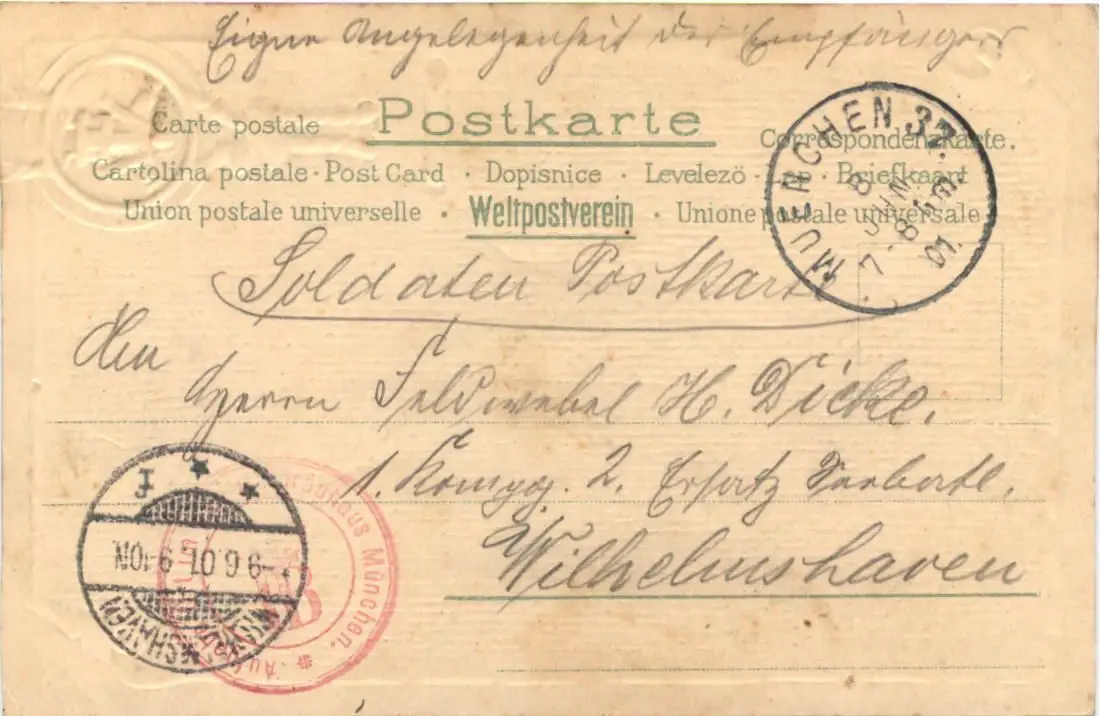 Eigne Angelegenheit des Empfängers
Carte postale Postkarte Correspondenzkarte.
Cartolina postale · Post Card · Dopisnice · Levelezö - Briefkaart
Union postale universelle · Weltpostverein · Unione postale universale
MUENCHEN 37.
8 JUN
7-8 Nm.
01.
Soldaten Postkarte
An
Herrn Feldwebel H. Dicke.
1. Kompg. 2. Ersatz Seebatl.
Wilhelmshaven
WILHELMSHAVEN
9.6.01. 9-10N.
München.